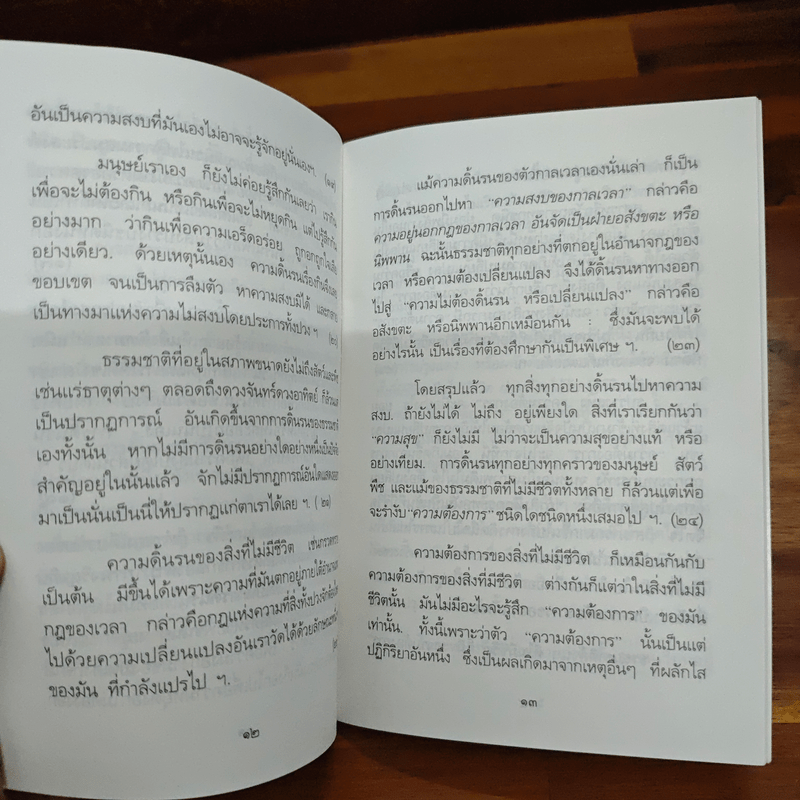 อันเป็นความสงบที่มันเองไม่อาจจะรู้จักอยู่นั่นเองฯ. (๑๙)
มนุษย์เราเอง ก็ยังไม่ค่อยรู้สึกกันเลยว่า เรากิน
เพื่อจะไม่ต้องกิน หรือกินเพื่อจะไม่หยุดกิน แต่ไปรู้สึกกัน
อย่างมาก ว่ากินเพื่อความเอร็ดอร่อย ถูกอกถูกใจ
อย่างเดียว. ด้วยเหตุนั้นเอง ความดิ้นรนเรื่องกินจึงเลย
ขอบเขต จนเป็นการลืมตัว หาความสงบมิได้
เป็นทางมาแห่งความไม่สงบโดยประการทั้งปวง ฯ (๒๐)
ธรรมชาติที่อยู่ในสภาพขนาดยังไม่ถึงสัตว์และพืช
เช่นแร่ธาตุต่างๆ ตลอดถึงดวงจันทร์ดวงอาทิตย์ ก็ล้วนแต่
เป็นปรากฏการณ์ อันเกิดขึ้นจากการดิ้นรนของธรรมชาติ
เองทั้งนั้น หากไม่มีการดิ้นรนอย่างใดอย่างหนึ่งเป็น
สำคัญอยู่ในนั้นแล้ว จักไม่มีปรากฏการณ์อันใด
มาเป็นนั่นเป็นนี่ให้ปรากฏแก่ตาเราได้เลย ฯ. (๒๑)
ความดิ้นรนของสิ่งที่ไม่มีชีวิต เช่น
เป็นต้น มีขึ้นได้เพราะความที่มันตกอยู่ภายใต้
กฎของเวลา กล่าวคือกฎแห่งความที่สิ่งทั้งปวง
ไปด้วยความเปลี่ยนแปลงอันเราวัดได้ด้วย
ของมัน ที่กำลังแปรไป ฯ.
๑๒
แม้ความดิ้นรนของตัวกาลเวลาเองนั่นเล่า ก็เป็น
การดิ้นรนออกไปหา “ความสงบของกาลเวลา” กล่าวคือ
ความอยู่นอกกฎของกาลเวลา อันจัดเป็นฝ่ายอสังขตะ หรือ
นิพพาน ฉะนั้นธรรมชาติทุกอย่างที่ตกอยู่ในอำนาจกฎของ
เวลา หรือความต้องเปลี่ยนแปลง จึงได้ดิ้นรนหาทางออก
ไปสู่ “ความไม่ต้องดิ้นรน หรือเปลี่ยนแปลง” กล่าวคือ
อสังขตะ หรือนิพพานอีกเหมือนกัน : ซึ่งมันจะพบได้
อย่างไรนั้น เป็นเรื่องที่ต้องศึกษากันเป็นพิเศษ ฯ. (๒๓)
โดยสรุปแล้ว ทุกสิ่งทุกอย่างดิ้นรนไปหาความ
สงบ. ถ้ายังไม่ได้ ไม่ถึง อยู่เพียงใด สิ่งที่เราเรียกกันว่า
“ความสุข” ก็ยังไม่มี ไม่ว่าจะเป็นความสุขอย่างแท้ หรือ
อย่างเทียม. การดิ้นรนทุกอย่างทุกคราวของมนุษย์ สัตว์
พืช และแม้ของธรรมชาติที่ไม่มีชีวิตทั้งหลาย ก็ล้วนแต่เพื่อ
จะรำงับ “ความต้องการ” ชนิดใดชนิดหนึ่งเสมอไป ฯ. (๒๔)
ความต้องการของสิ่งที่ไม่มีชีวิต ก็เหมือนกันกับ
ความต้องการของสิ่งที่มีชีวิต ต่างกันก็แต่ว่าในสิ่งที่ไม่มี
ชีวิตนั้น มันไม่มีอะไรจะรู้สึก “ความต้องการ” ของมัน
เท่านั้น. ทั้งนี้เพราะว่าตัว “ความต้องการ” นั้นเป็นแต่
ปฏิกิริยาอันหนึ่ง ซึ่งเป็นผลเกิดมาจากเหตุอื่นๆ ที่ผลักไส
๑๓